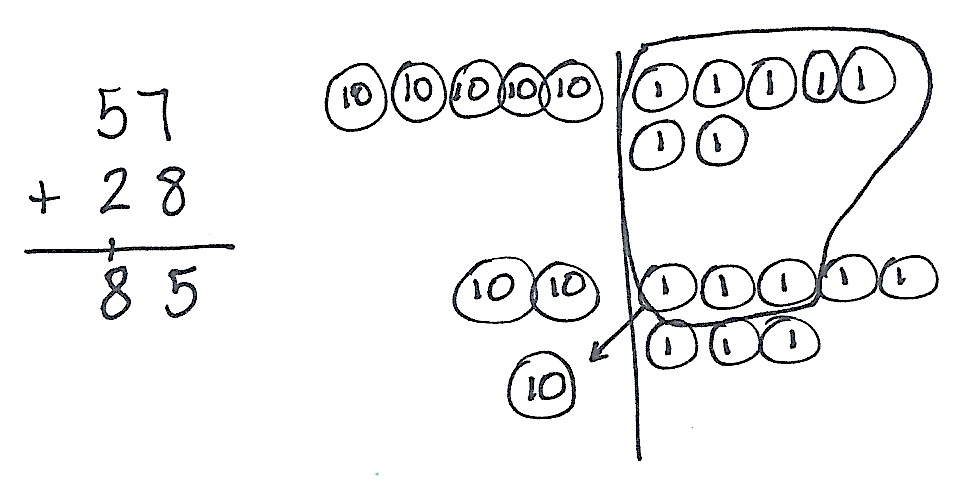 57
+ 28
1
85
10 10 10 10 10 1 1 1 1 1
1 1
10 10 1 1 1 1 1
1 1 1
10